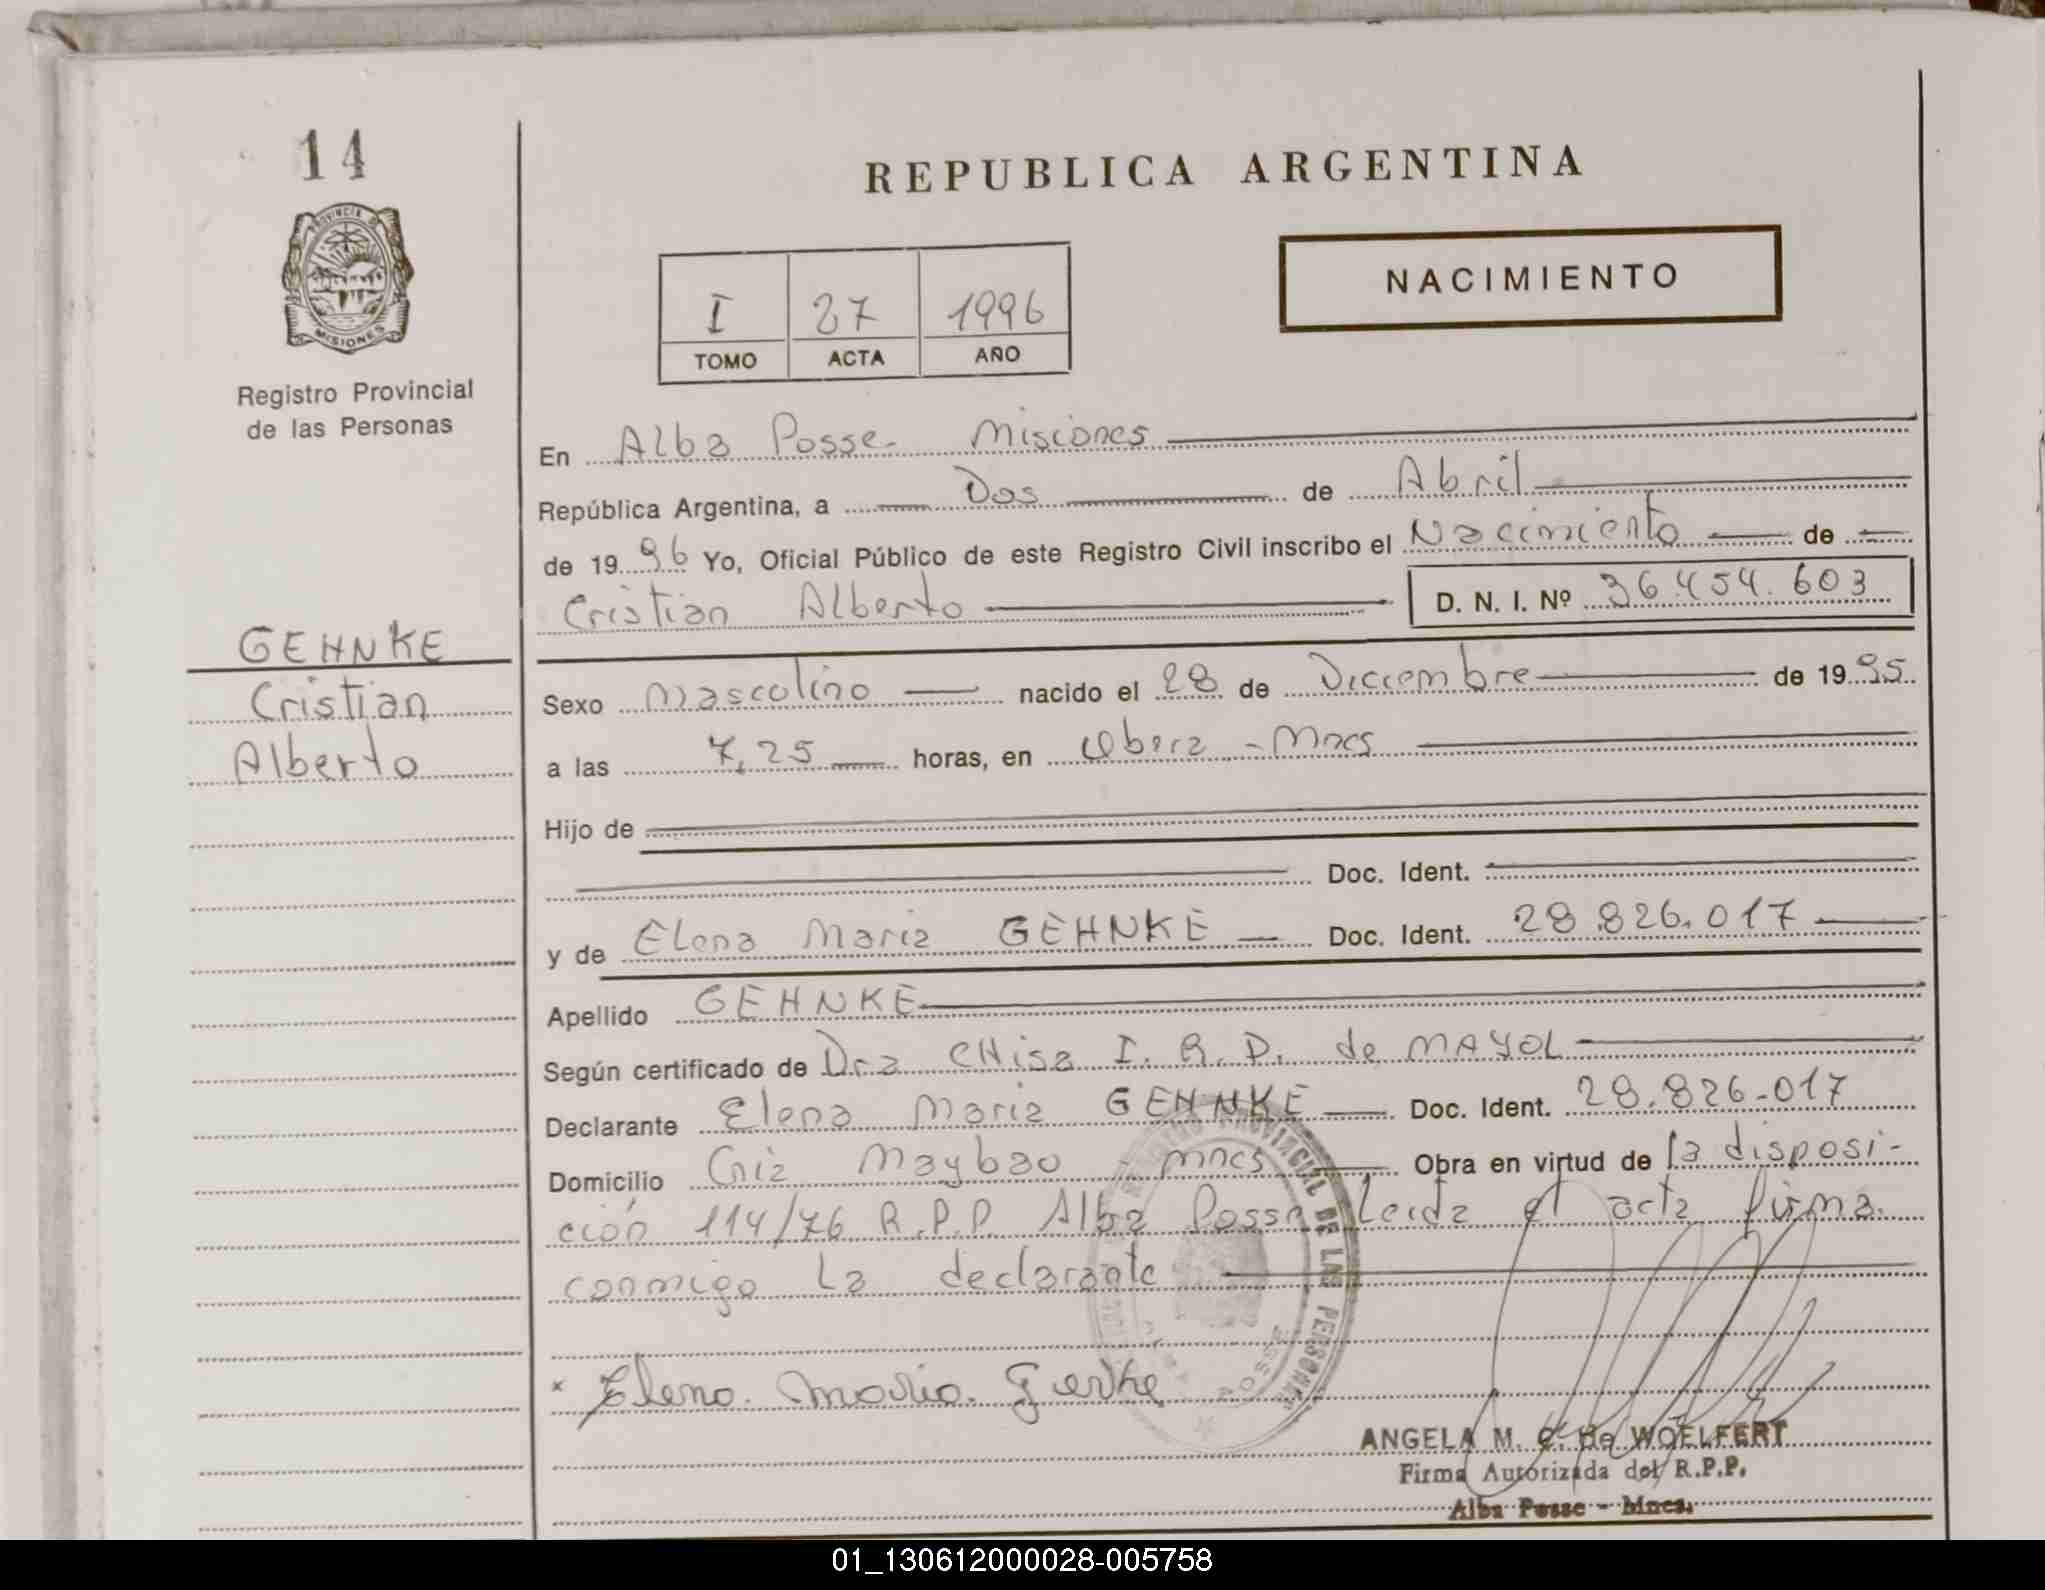 14
PROVINCIA DE
MISIONES
Registro Provincial
de las Personas
GEHNKE
Cristian
Alberto
REPUBLICA ARGENTINA
NACIMIENTO
I 27 1996
TOMO ACTA AÑO
En Alba Posse - Misiones
República Argentina, a Dos de Abril
de 19 96 Yo, Oficial Público de este Registro Civil inscribo el Nacimiento de
Cristian Alberto D. N. I. Nº 36.454.603
Sexo Mascolino nacido el 28 de Diciembre de 19 95
a las 7,25 horas, en Obera - Mnes
Hijo de
Doc. Ident.
y de Elena Maria GEHNKE Doc. Ident. 28.826.017
Apellido GEHNKE
Según certificado de Dra I. R. D. de MAYOL
Declarante Elena Maria GEHNKE Doc. Ident. 28.826.017
Domicilio Maybao Mnes Obra en virtud de la disposi-
ción 114/76 R.P.P. Alba Posse Leida el acta firma
conmigo La declarante
REGISTRO PROVINCIAL DE LAS PERSONAS
ALBA POSSE
x Elena. Maria. Genke
ANGELA M. C. de WOELFERT
Firma Autorizada del R.P.P.
Alba Posse - Mnes.
01_130612000028-005758